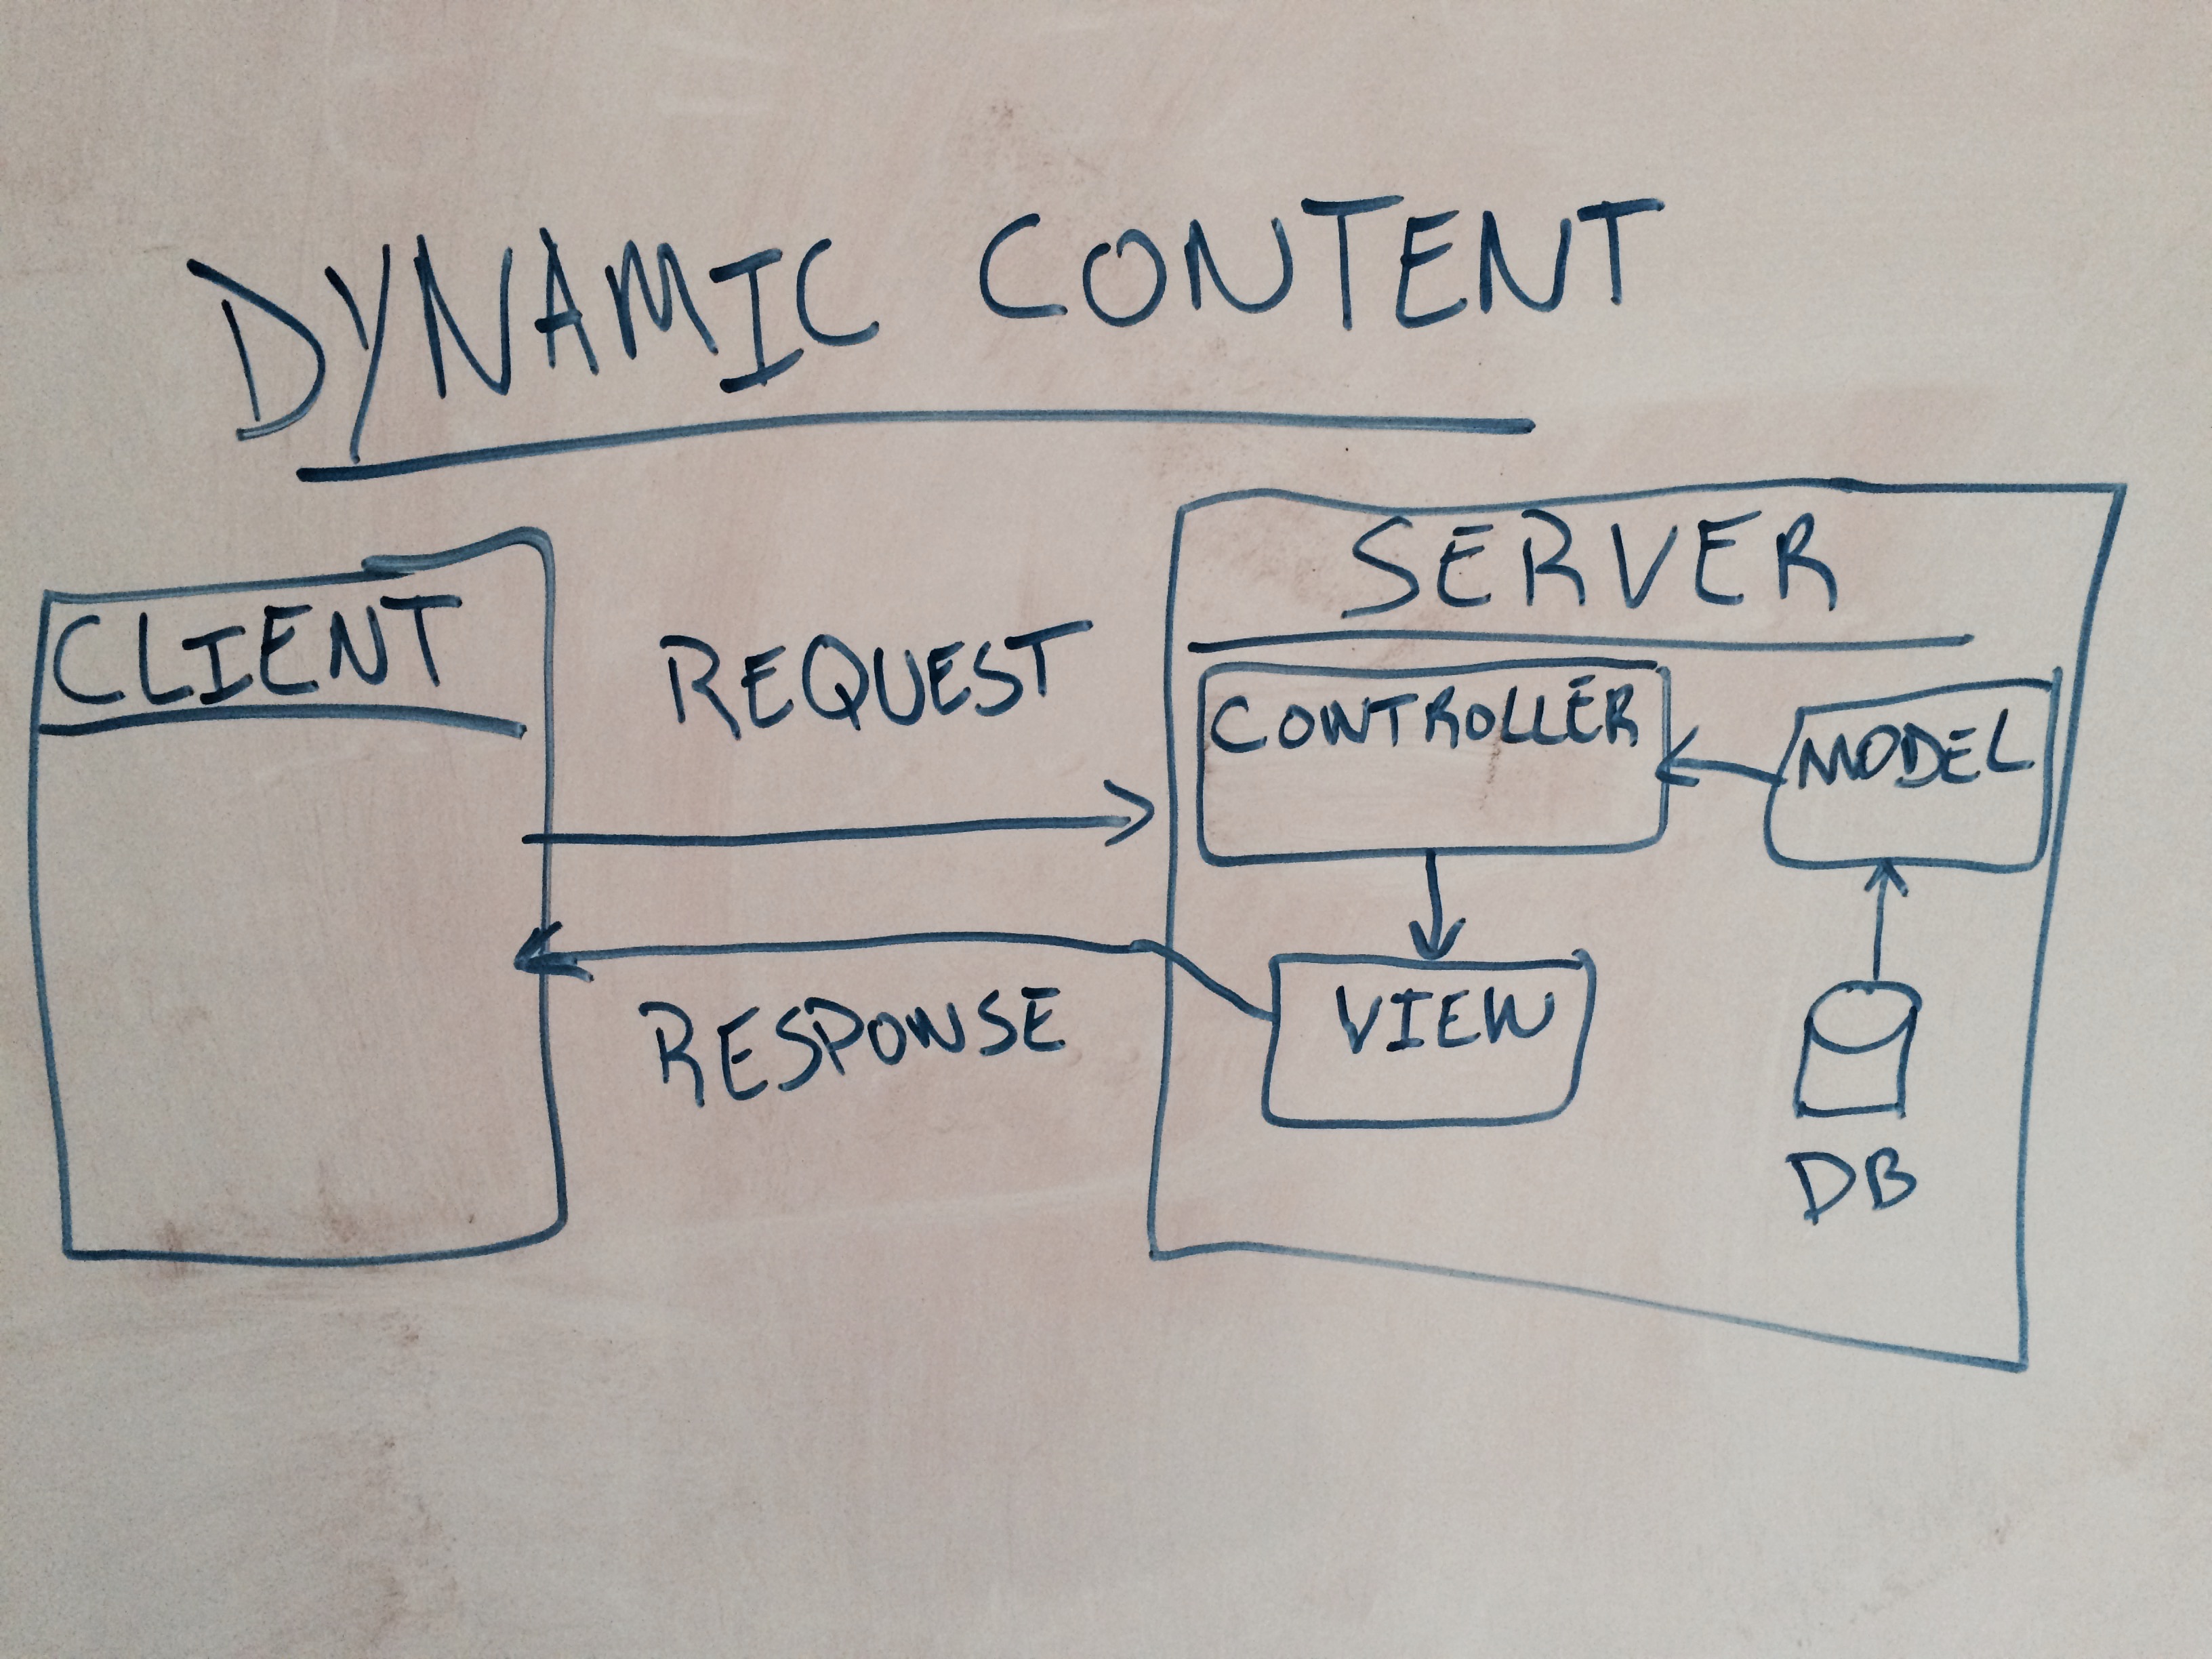 DYNAMIC CONTENT
CLIENT
REQUEST
RESPONSE
SERVER
CONTROLLER
MODEL
VIEW
DB